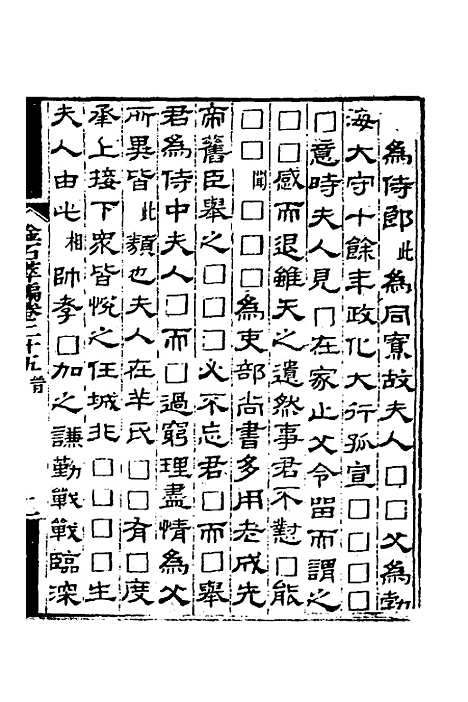 為侍郎此為同寮故夫人□□父為勃
海大守十餘年政化大行孤宣□□□□
□意時夫人見□在家止父令留而謂之
□□感而退雖天之遺然事君不懟□能
□□聞□□□□為吏部尚書多用老成先
帝舊臣舉之□□义不忘君□而□舉
君為侍中夫人□而□過窮理盡情為父
所異皆此類也夫人在羊氏□□有□度
承上接下衆皆悅之任城北□□□□生
夫人由此相帥孝□加之謙勤戰戰臨深
金石萃編卷二十五 晉